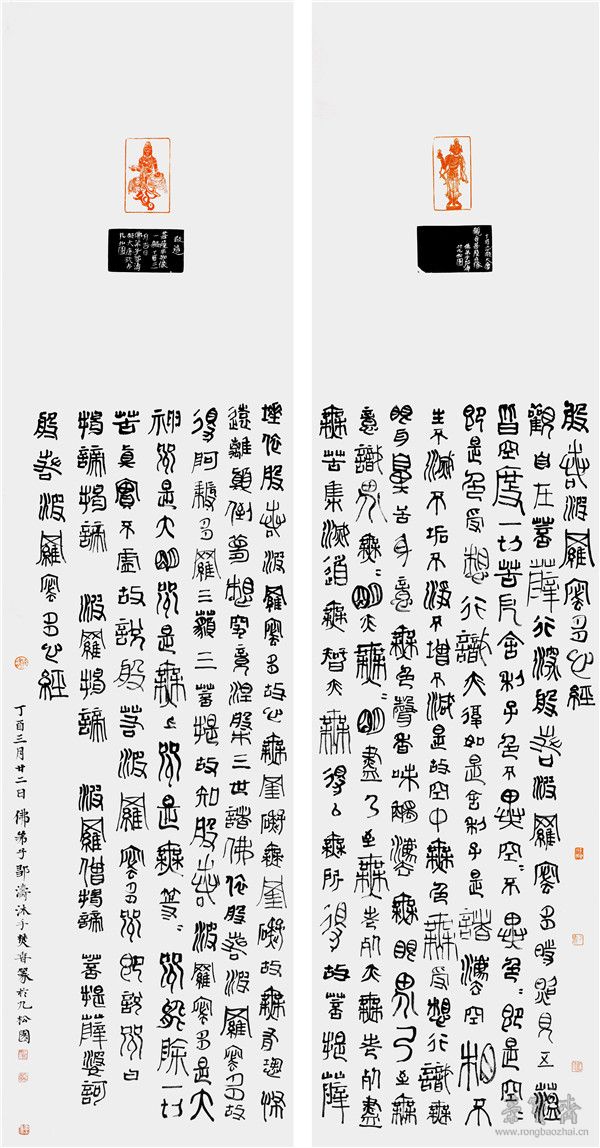 般若波羅密多心經
觀自在菩薩行深般若波羅密多時照見五蘊
皆空度一切苦厄舍利子色不異空〻不異色〻即是空〻
即是色受想行識亦復如是舍利子是諸法空相不
生不滅不垢不淨不增不減是故空中無色無受想行識無
眼耳鼻舌身意無色聲香味觸法無眼界乃至無
意識界無〻明亦無〻明盡乃至無老死亦無老死盡
無苦集滅道無智亦無得以無所得故菩提薩
埵依般若波羅密多故心無罣礙無罣礙故無有恐怖
遠離顛倒夢想究竟涅槃三世諸佛依般若波羅密多故
得阿耨多羅三藐三菩提故知般若波羅密多是大
神咒是大明咒是無上咒是無等〻咒能除一切
苦真實不虛故說般若波羅密多咒即說咒曰
揭諦揭諦 波羅揭諦 波羅僧揭諦 菩提薩婆訶
般若波羅密多心經
丁酉三月廿二日佛弟子鄒濤沐手焚香篆於九松園
榮寶齋
www.rongbaozhai.cn